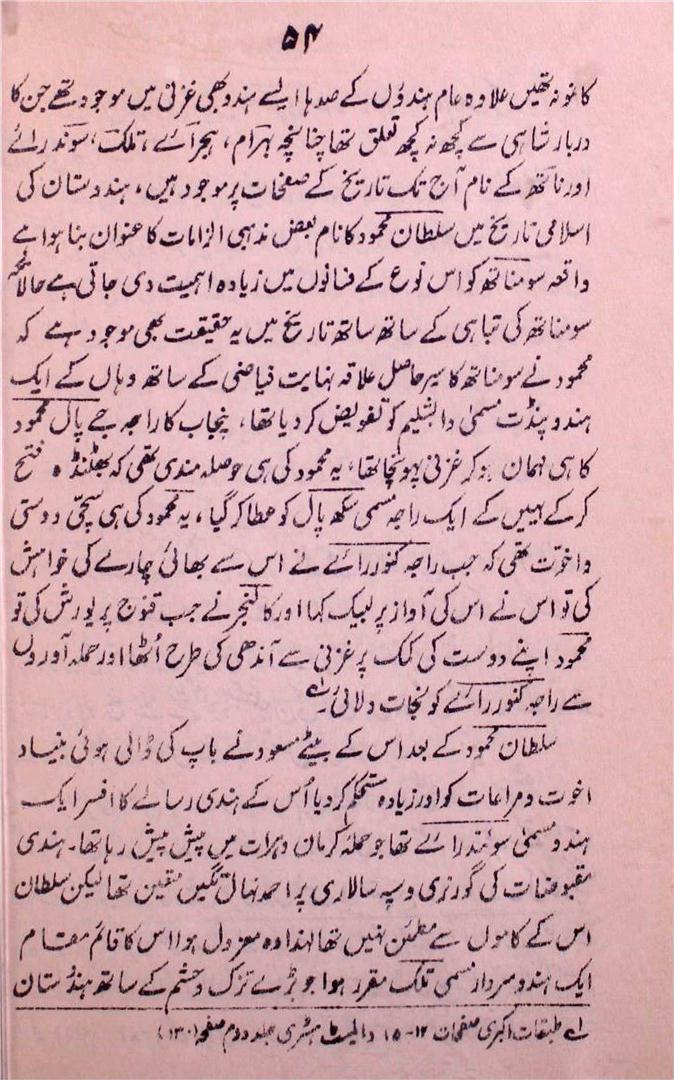 ۵۴
کا نمونہ تھیں علاوہ عام ہندؤں کے صدہا ایسے ہندو بھی غزنی میں موجود تھے جن کا
دربار شاہی سے کچھ نہ کچھ تعلق تھا چنانچہ بہرام، ہجرائے، تلک، سوندرائے
اور ناتھ کے نام آج تک تاریخ کے صفحات پر موجود ہیں، ہندوستان کی
اسلامی تاریخ میں سلطان محمود کا نام بعض مذہبی الزامات کا عنوان بنا ہوا ہے
واقعہ سومناتھ کو اس نوع کے فسانوں میں زیادہ اہمیت دی جاتی ہے حالانکہ
سومناتھ کی تباہی کے ساتھ ساتھ تاریخ میں یہ حقیقت بھی موجود ہے کہ
محمود نے سومناتھ کا سیر حاصل علاقہ نہایت فیاضی کے ساتھ وہاں کے ایک
ہندو پنڈت مسمیٰ دابشلیم کو تفویض کر دیا تھا، پنجاب کا راجہ جے پال محمود
کا ہی مہمان ہو کر غزنی پہونچا تھا، یہ محمود کی ہی حوصلہ مندی تھی کہ بھٹنڈہ فتح
کر کے یہیں کے ایک راجہ مسمی سکھ پال کو عطا کر گیا، یہ محمود کی ہی سچی دوستی
و اخوت تھی کہ جب راجہ کنور رائے نے اس سے بھائی چارے کی خواہش
کی تو اس نے اس کی آواز پر لبیک کہا اور کالنجر نے جب قنوج پر یورش کی تو
محمود اپنے دوست کی کمک پر غزنی سے آندھی کی طرح اُٹھا اور حملہ آوروں
سے راجہ کنور رائے کو نجات دلائی۔ لے
سلطان محمود کے بعد اس کے بیٹے مسعود نے باپ کی ڈالی ہوئی بنیاد
اخوت و مراعات کو اور زیادہ مستحکم کر دیا اُس کے ہندی رسالے کا افسر ایک
ہندو مسمیٰ سوئندرائے تھا جو حملہ کرمان و ہرات میں پیش پیش رہا تھا۔ ہندی
مقبوضات کی گورنری و سپہ سالاری پر احمد نہال تگیں متعین تھا لیکن سلطان
اس کے کاموں سے مطمئن نہیں تھا لہٰذا وہ معزول ہوا اس کا قائم مقام
ایک ہندو سردار مسمی تلک مقرر ہوا جو بڑے تزک و حشم کے ساتھ ہندُستان
لے طبقات اکبری صفحات ۱۴-۱۵ و ایلیٹ ہسٹری جلد دوم صفحہ (۱۳۰)